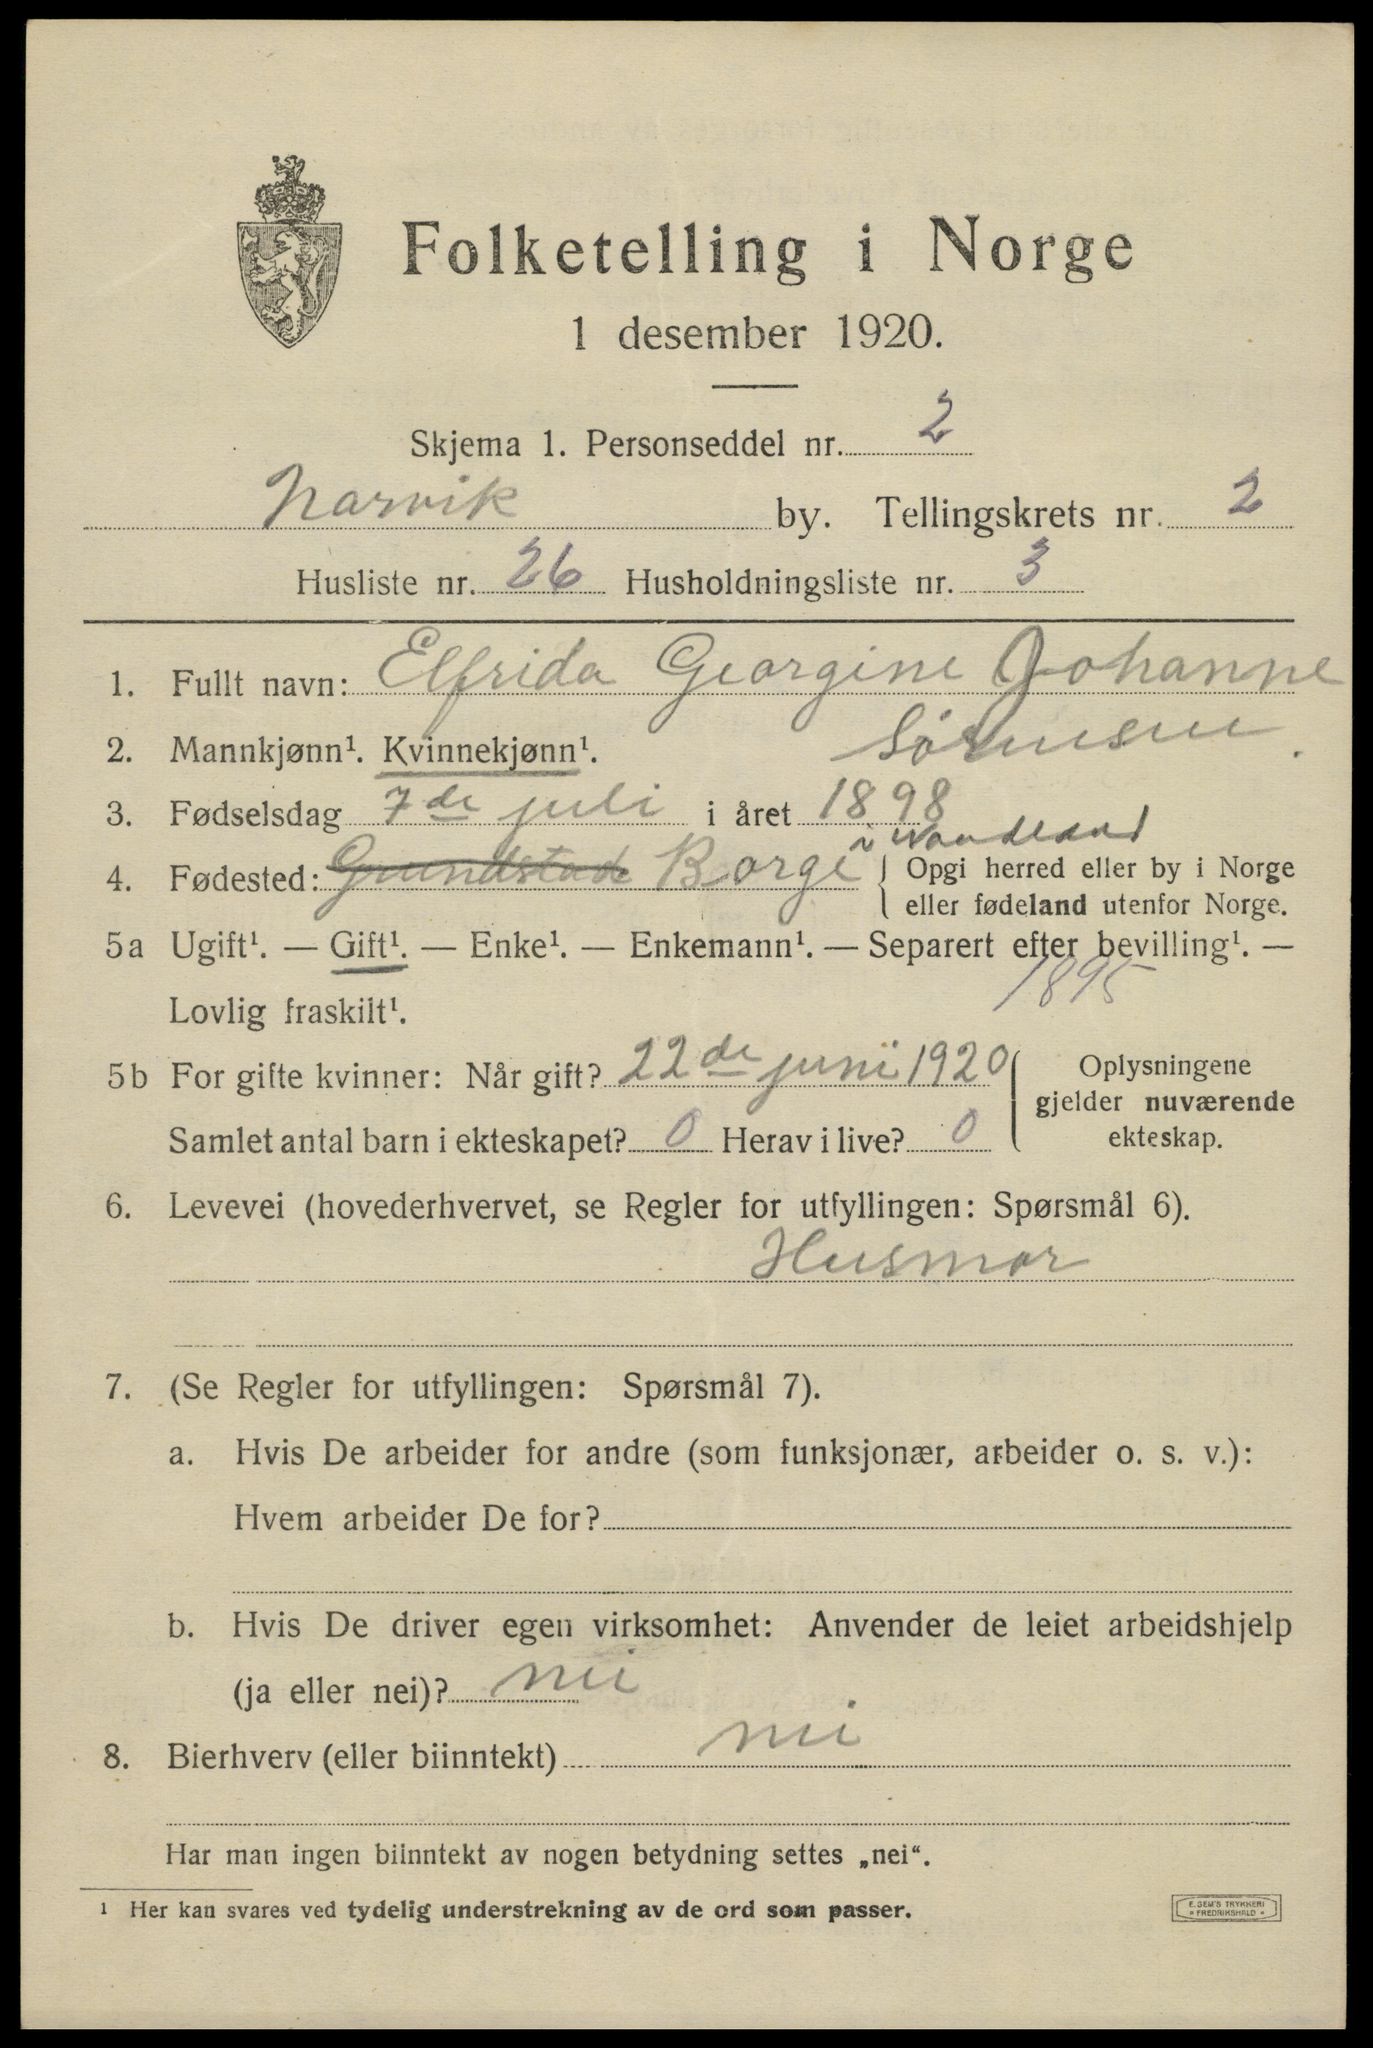 Folketelling i Norge
1 desember 1920.
Skjema 1. Personseddel nr. 2
Narvik by. Tellingskrets nr. 2
Husliste nr. 26 Husholdningsliste nr. 3
1. Fullt navn: Elfrida Georgine Johanne
Sörensen.
2. Mannkjønn¹. Kvinnekjønn¹.
3. Fødselsdag 7de juli i året 1898
4. Fødested: Grundstade Borge i Nordland { Opgi herred eller by i Norge
eller fødeland utenfor Norge.
5a Ugift¹. — Gift¹. — Enke¹. — Enkemann¹. — Separert efter bevilling¹. —
Lovlig fraskilt¹. 1895
5b For gifte kvinner: Når gift? 22de juni 1920 { Oplysningene
gjelder nuværende
Samlet antal barn i ekteskapet? 0 Herav i live? 0 ekteskap.
6. Levevei (hovederhvervet, se Regler for utfyllingen: Spørsmål 6).
Husmor
7. (Se Regler for utfyllingen: Spørsmål 7).
a. Hvis De arbeider for andre (som funksjonær, arbeider o. s. v.):
Hvem arbeider De for?
b. Hvis De driver egen virksomhet: Anvender de leiet arbeidshjelp
(ja eller nei)? nei
8. Bierhverv (eller biinntekt) nei
Har man ingen biinntekt av nogen betydning settes „nei“.
¹ Her kan svares ved tydelig understrekning av de ord som passer.
E. SEM'S TRYKKERI
* FREDRIKSHALD *